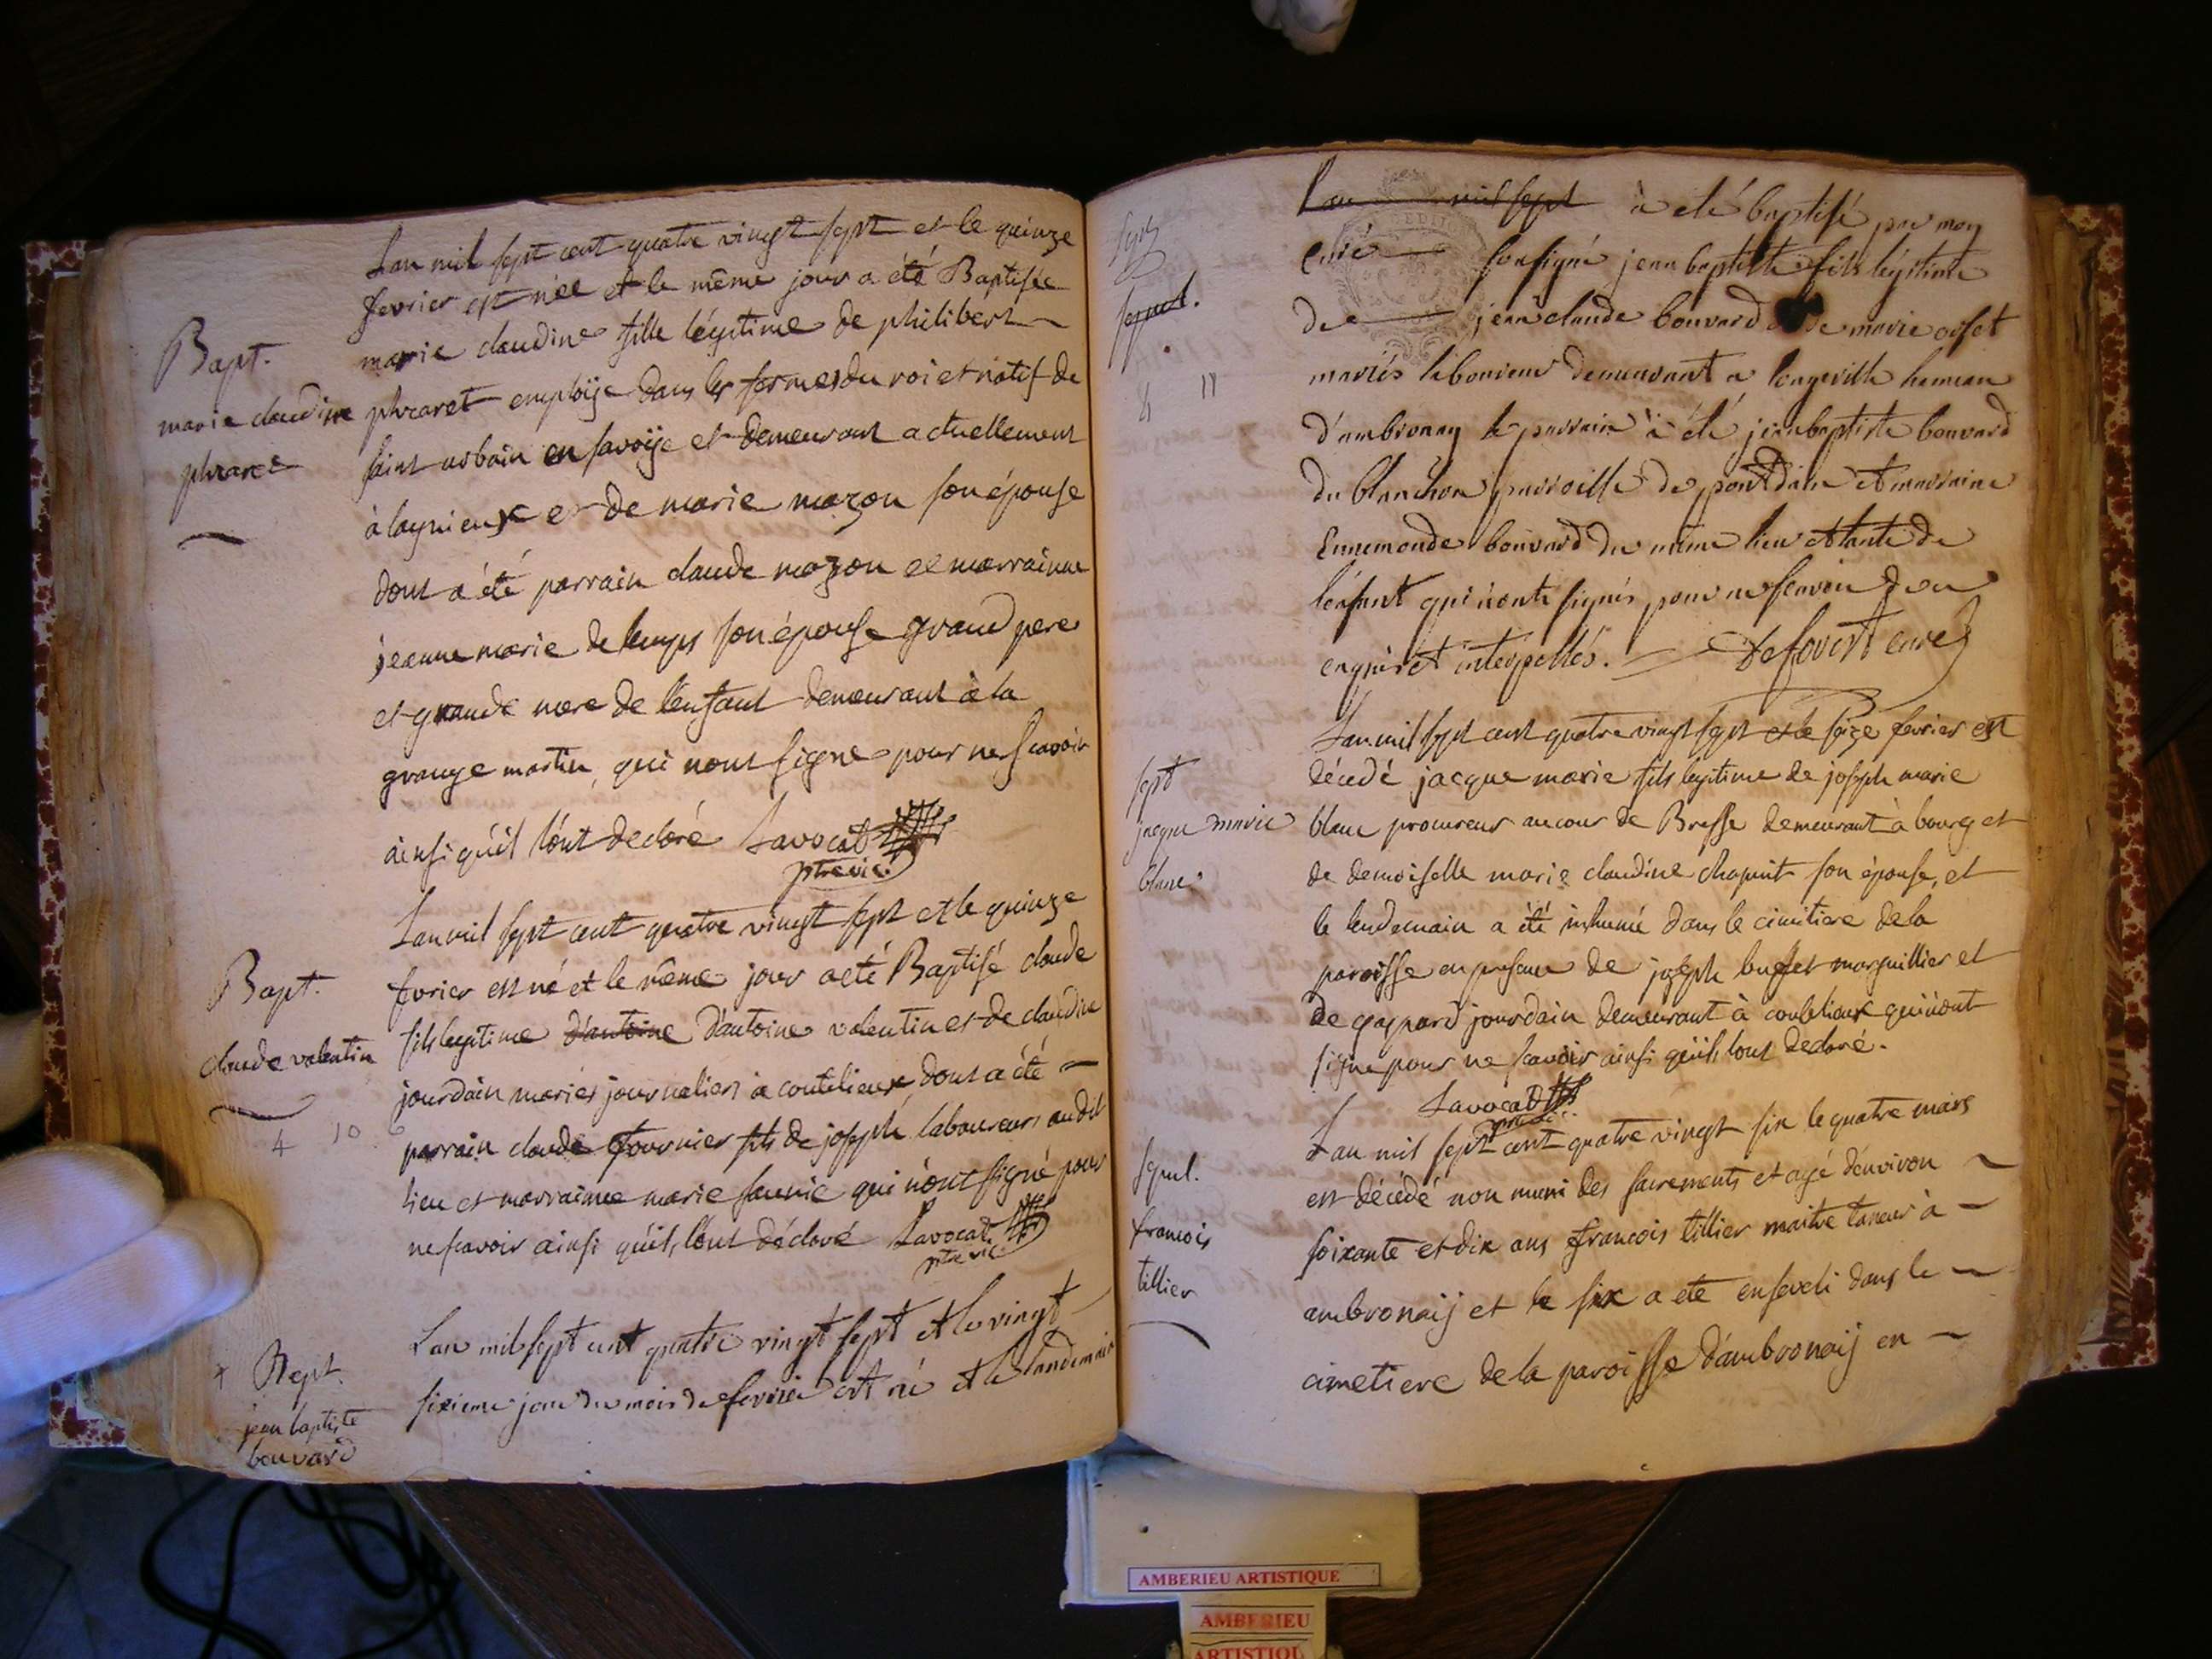 Lan mil sept cent quatre vingt sept et le quinze
fevrier est née et le même jour a été Baptisée
marie claudine fille légitime de philibert
Bapt.
marie claudine
phraret
phraret employe dans les fermes du roi et natif de
saint urbain en savoije et demeurant actuellement
à lagnieux et de marie mazon son épouse
dont a été parrain claude mazon et marrainne
jeanne marie de son épouse grand pere
et grande mere de l'enfant demeurant a la
grange martin, qui nont signe pour ne scavoir
ainsi qu'il l'ont decloré Lavocat
ptre vic.
Lan mil sept cent quatre vingt sept et le quinze
fevrier est né et le même jour a eté Baptisé claude
Bapt.
claude valentin
4 10
fils legitime d'antoine d'antoine valentin et de claudine
jourdain mariés journaliers a coutelieux, dont a été
parrain claude fournier fils de joseph laboureur audit
lieu et marrainne marie qui n'ont signé pour
ne scavoir ainsi qu'il, l'ont décloré Lavocat
ptre vic.
Bapt.
jean baptiste
bouvard
Lan mil sept cent quatre vingt sept et le vingt
sixieme jour du mois de fevrier est né et le landemain
Lan mil sept à eté baptisé par moy
curé sousigné jean baptiste fils légitime
de jean claude bouvard et de marie orset
sepul.
4 11
mariés laboureur demeurant a longeville hameau
d'ambronay le parrain à été jean baptiste bouvard
du blanchon parroisse de pont dain et marraine
Ennemonde bouvard du même lieu et tante de
l'enfant qui n'onts signés pour ne scavoir de ce
enquis et interpellés. Deforest curé
Lan mil sept cent quatre vingt sept et le seize fevrier est
sept
jacque marie
blanc
décedé jacque marie fils legitime de joseph marie
blanc procureur au cour de Bresse demeurant à bourg et
de demoiselle marie claudine chapuit son épouse, et
le lendemain a été inhumé dans le cimitiere de la
paroisse en presence de joseph buffet marguillier et
de gaspard jourdain demeurant à coutelieux qui n'ont
signe pour ne scavoir ainsi qu'il, l'ont decloré.
Lavocat
ptre vic.
Lan mil sept cent quatre vingt six le quatre mars
sepul.
francois
tillier
est décédé non muni des sacrements et agé d'environ
soixante et dix ans francois tillier maitre taneur à
ambronaij et le six a ete enseveli dans le
cimetiere de la paroisse d'ambronaij en
AMBERIEU ARTISTIQUE
AMBERIEU
ARTISTIQU